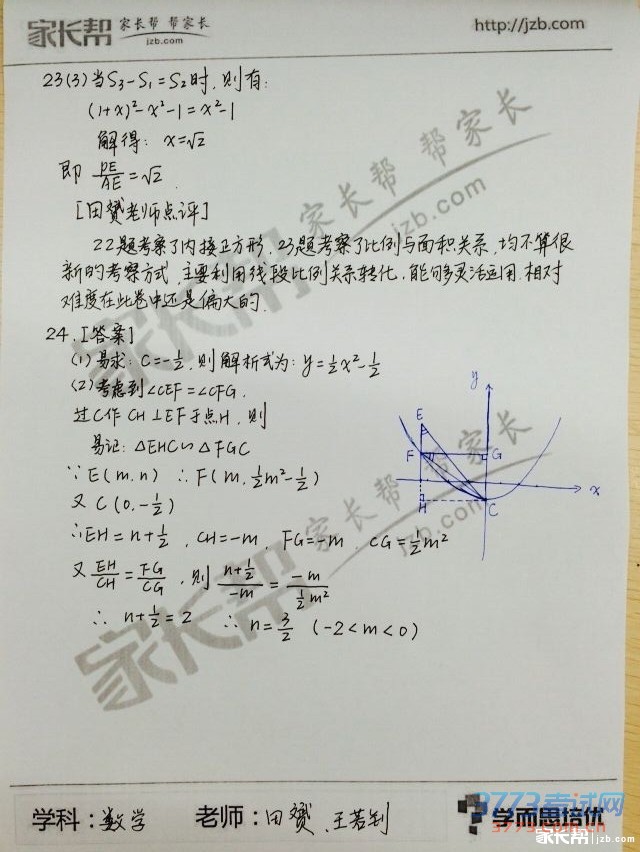 家长帮 家长帮 帮家长
jzb.com
http://jzb.com
23(3)当S₃-S₁=S₂时,则有:
(1+x)²-x²-1=x²-1
解得: x=√2
即 DE/AE=√2.
[田赟老师点评]
22题考察了内接正方形,23题考察了比例与面积关系,均不算很
新的考察方式,主要利用线段比例关系转化,能够灵活运用.相对
难度在此卷中还是偏大的.
24.[答案]
(1)易求: C=-1/2, 则解析式为: y=1/2x²-1/2
(2)考虑到∠CEF=∠CFG.
过C作CH⊥EF于点H, 则
易证: △EHC∽△FGC
∵E(m,n) ∴F(m,1/2m²-1/2)
又C(0,-1/2)
∴EH=n+1/2, CH=-m, FG=-m, CG=1/2m²
又 EH/CH=FG/CG, 则 (n+1/2)/(-m)=(-m)/(1/2m²)
∴ n+1/2=2 ∴ n=3/2 (-2<m<0)
y
E
F
G
x
H
C
家长帮 帮家长
jzb.com
家长帮 帮家长
jzb.com
学科:数学 老师:田赟、王若钊
学而思培优
3773考试网
家长帮|jzb.com